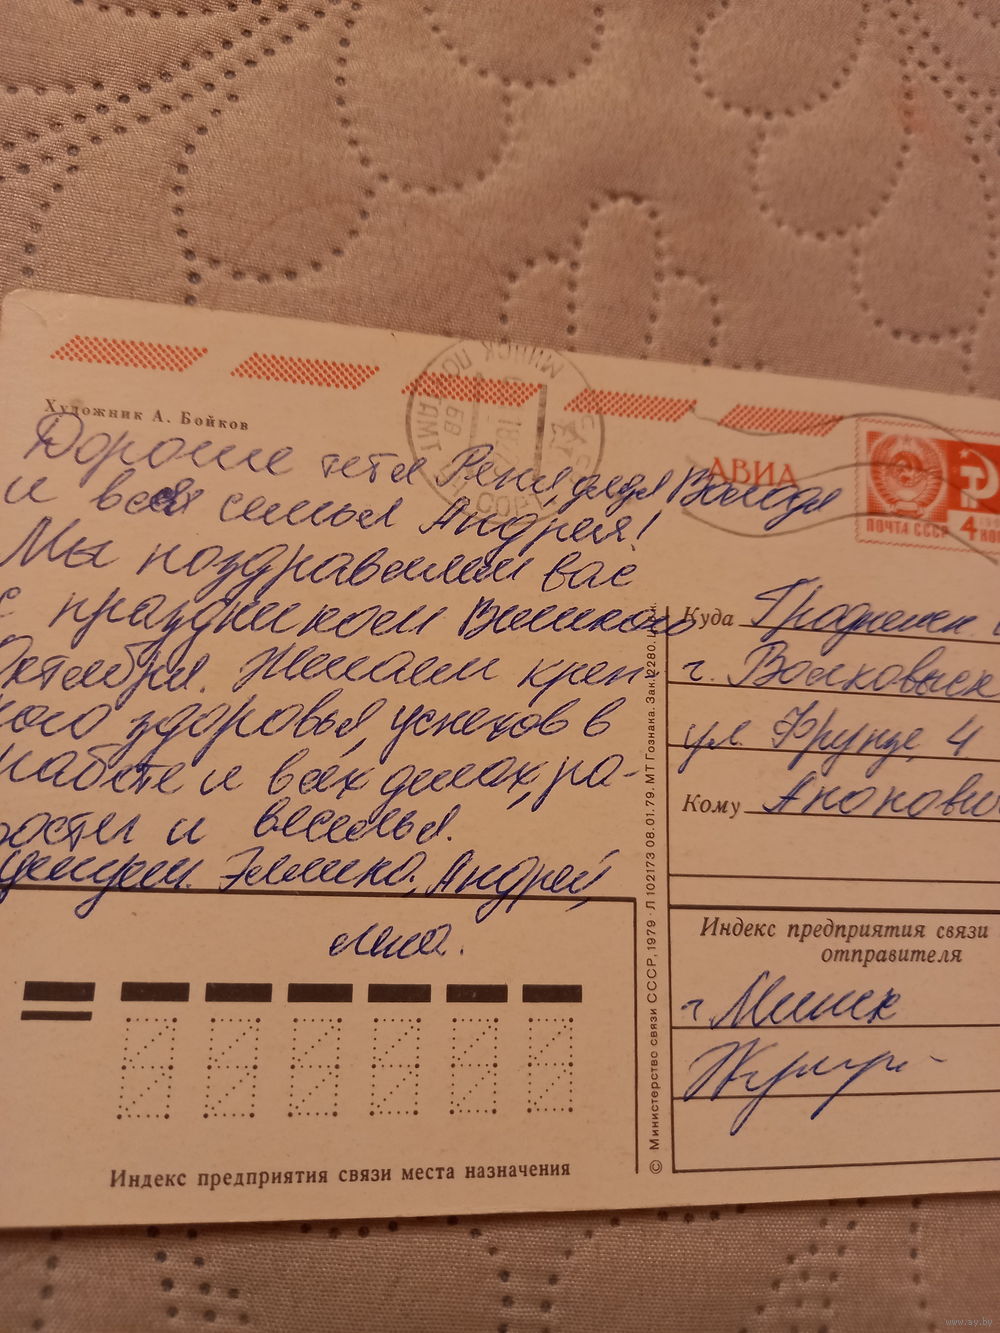 Художник А. Бойков
Дорогие тетя Реня, дядя Володя
и вся семья Андрея!
Мы поздравляем вас
с праздником Великого
Октября. Желаем креп-
кого здоровья, успехов в
работе и всех делах, ра-
дости и веселья.
Эллина, Андрей,
АВИА
ПОЧТА СССР
4 КОП
МИНСК ПОЧТАМТ
Куда Гродненск.
г. Волковыск
ул. Фрунзе, 4
Кому
Индекс предприятия связи
отправителя
г. Минск
Индекс предприятия связи места назначения
© Министерство связи СССР, 1979 · Л 102173 08.01.79. МТ Гознака. Зак. 2280. Ц
www.ay.by